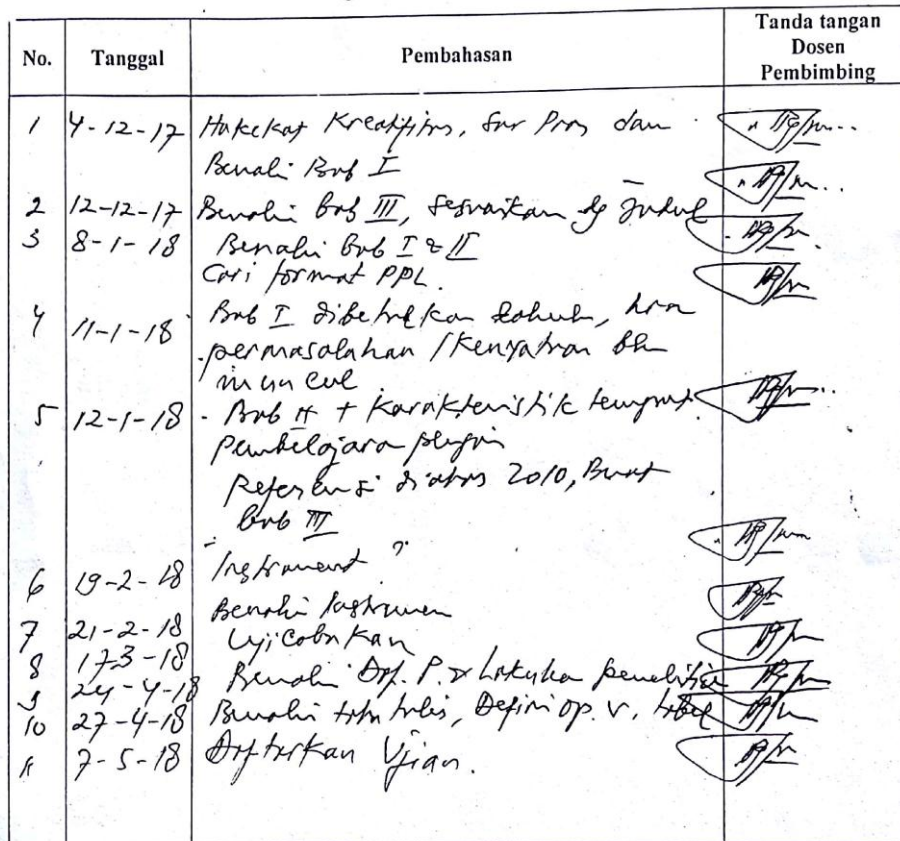 No. Tanggal Pembahasan Tanda tangan
Dosen
Pembimbing
1 4-12-17 Hakekat Kreatifitas, dan
Benahi Bab I
2 12-12-17 Benahi bab III, sesuaikan dg Judul
3 8-1-18 Benahi bab I & II
Cari format PPL.
4 11-1-18 Bab I
permasalahan / kenyataan
muncul
5 12-1-18 - Bab II + Karakteristik
Pembelajaran
Referensi diatas 2010, Buat
bab III
- Instrument ?
6 19-2-18 Benahi Instrumen
7 21-2-18 Ujicobakan
8 17-3-18 Benahi P. & Lakukan penelitian
9 24-4-18 Benahi tata tulis, Defini op. v. tabel
10 27-4-18 Daftarkan Ujian.
11 7-5-18